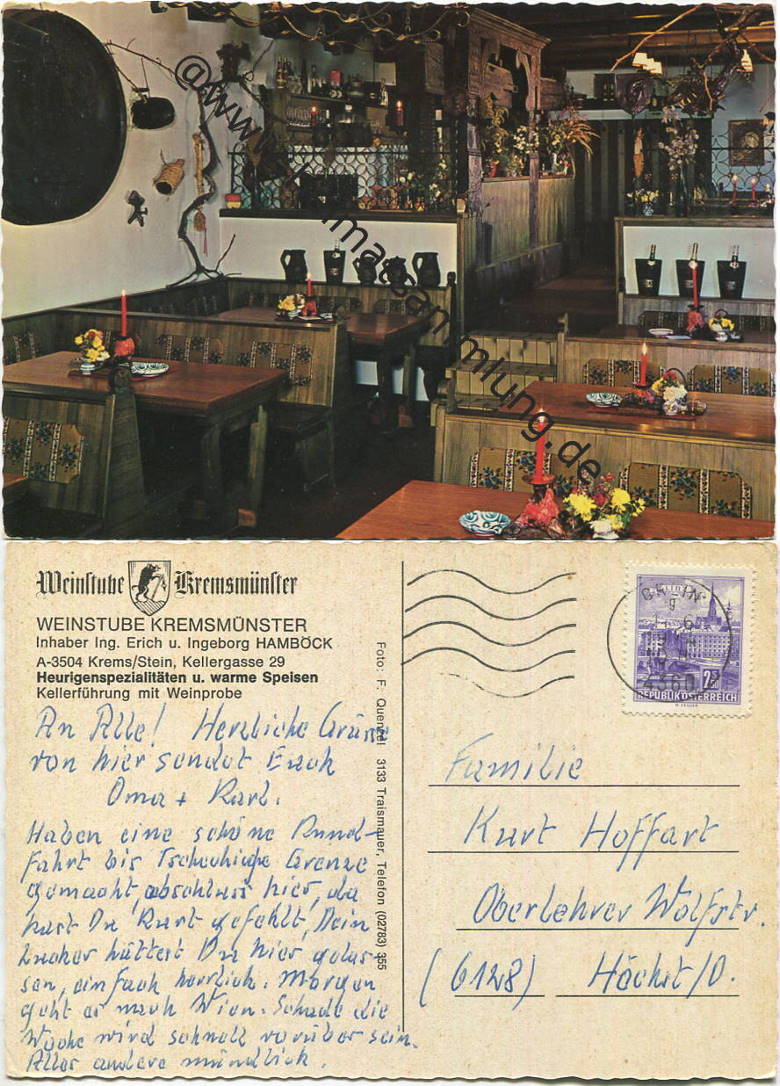 @www.ansichtskartensammlung.de
Weinstube Kremsmünster
WEINSTUBE KREMSMÜNSTER
Inhaber Ing. Erich u. Ingeborg HAMBÖCK
A-3504 Krems/Stein, Kellergasse 29
Heurigenspezialitäten u. warme Speisen
Kellerführung mit Weinprobe
An Alle! Herzliche Grüsse
von hier sendet Euch
Oma + Karl.
Haben eine schöne Rund-
fahrt bis Tschechische Grenze
gemacht, abschluss hier, da
hast Du Kurt gefehlt, Dein
hättest Du hier gelas-
sen, einfach herrlich. Morgen
geht es nach Wien. Schade die
Woche wird schnell vorüber sein.
Alles andere mündlich.
Foto: F. Quenzel 3133 Traismauer, Telefon (02783) 355
GREIN
4360
2.50
REPUBLIK ÖSTERREICH
Familie
Kurt Hoffart
Oberlehrer Wolfstr.
(6128) Höchst/O.